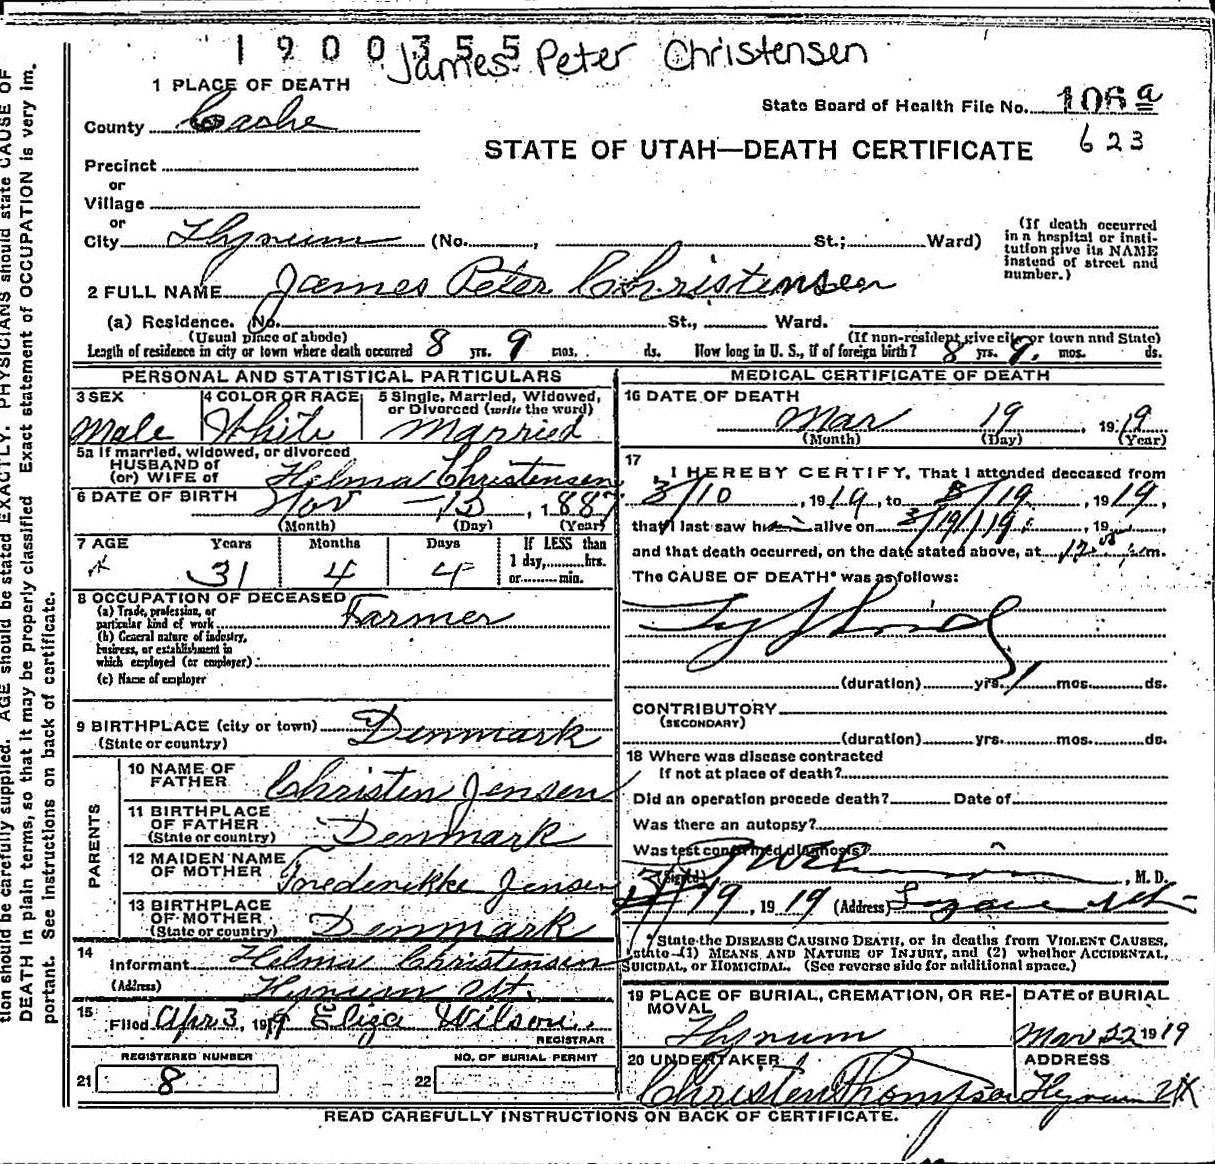 1900355
James Peter Christensen
1 PLACE OF DEATH
State Board of Health File No. 106a
County Cache
STATE OF UTAH—DEATH CERTIFICATE
623
Precinct
or
Village
or
City Hyrum (No. , St.; Ward)
(If death occurred
in a hospital or insti-
tution give its NAME
instead of street and
number.)
2 FULL NAME James Peter Christensen
(a) Residence. No. St., Ward.
(Usual place of abode) (If non-resident give city or town and State)
Length of residence in city or town where death occurred 8 yrs. 9 mos. ds. How long in U. S., if of foreign birth? 8 yrs. 9. mos. ds.
PERSONAL AND STATISTICAL PARTICULARS
3 SEX
Male
4 COLOR OR RACE
White
5 Single, Married, Widowed,
or Divorced (write the word)
Married
5a If married, widowed, or divorced
HUSBAND of
(or) WIFE of Helma Christensen
6 DATE OF BIRTH
Nov - 15, 1887
(Month) (Day) (Year)
7 AGE Years Months Days If LESS than
1 day, hrs.
or min.
31 4 4
8 OCCUPATION OF DECEASED
(a) Trade, profession, or
particular kind of work Farmer
(b) General nature of industry,
business, or establishment in
which employed (or employer)
(c) Name of employer
9 BIRTHPLACE (city or town)
(State or country) Denmark
PARENTS
10 NAME OF
FATHER Christen Jensen
11 BIRTHPLACE
OF FATHER
(State or country) Denmark
12 MAIDEN NAME
OF MOTHER Fredenikke Jensen
13 BIRTHPLACE
OF MOTHER
(State or country) Denmark
14
Informant Helma Christensen
(Address) Hyrum Ut.
15
Filed Apr 3, 1919 Eliza Wilson.
REGISTRAR
REGISTERED NUMBER
21 8
NO. OF BURIAL PERMIT
22
MEDICAL CERTIFICATE OF DEATH
16 DATE OF DEATH
Mar 19 1919
(Month) (Day) (Year)
17
I HEREBY CERTIFY, That I attended deceased from
3/10, 1919, to 3/19, 1919,
that I last saw him alive on 3/19/19, 19
and that death occurred, on the date stated above, at 12 m.
The CAUSE OF DEATH* was as follows:
Typhoid
(duration) yrs. 1 mos. ds.
CONTRIBUTORY
(SECONDARY)
(duration) yrs. mos. ds.
18 Where was disease contracted
If not at place of death?
Did an operation precede death? Date of
Was there an autopsy?
Was test confirmed diagnosis?
(Signed) , M. D.
3/19, 1919 (Address) Logan Ut
* State the DISEASE CAUSING DEATH, or in deaths from VIOLENT CAUSES,
state (1) MEANS AND NATURE OF INJURY, and (2) whether ACCIDENTAL,
SUICIDAL, or HOMICIDAL. (See reverse side for additional space.)
19 PLACE OF BURIAL, CREMATION, OR RE-
MOVAL
Hyrum
DATE of BURIAL
Mar 22 1919
20 UNDERTAKER
Christen Thompson
ADDRESS
Hyrum Ut
READ CAREFULLY INSTRUCTIONS ON BACK OF CERTIFICATE.
tion should be carefully supplied. AGE should be stated EXACTLY. PHYSICIANS should state CAUSE OF
DEATH in plain terms, so that it may be properly classified. Exact statement of OCCUPATION is very im-
portant. See instructions on back of certificate.